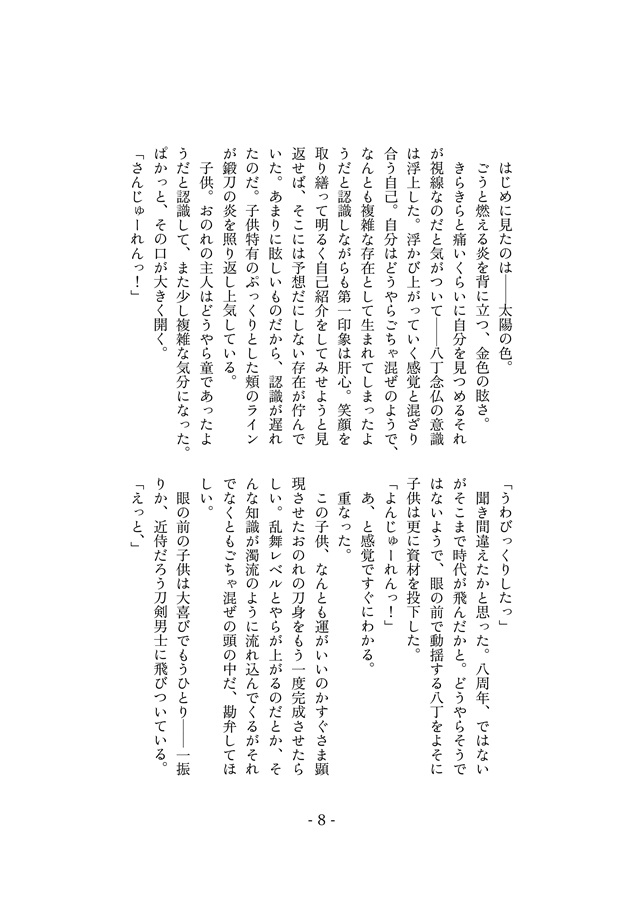 はじめに見たのは――太陽の色。
ごうと燃える炎を背に立つ、金色の眩さ。
きらきらと痛いくらいに自分を見つめるそれ
が視線なのだと気がついて――八丁念仏の意識
は浮上した。浮かび上がっていく感覚と混ざり
合う自己。自分はどうやらごちゃ混ぜのようで、
なんとも複雑な存在として生まれてしまったよ
うだと認識しながらも第一印象は肝心。笑顔を
取り繕って明るく自己紹介をしてみせようと見
返せば、そこには予想だにしない存在が佇んで
いた。あまりに眩しいものだから、認識が遅れ
たのだ。子供特有のぷっくりとした頬のライン
が鍛刀の炎を照り返し上気している。
子供。おのれの主人はどうやら童であったよ
うだと認識して、また少し複雑な気分になった。
ぱかっと、その口が大きく開く。
「さんじゅーれんっ！」
「うわびっくりしたっ」
聞き間違えたかと思った。八周年、ではない
がそこまで時代が飛んだかと。どうやらそうで
はないようで、眼の前で動揺する八丁をよそに
子供は更に資材を投下した。
「よんじゅーれんっ！」
あ、と感覚ですぐにわかる。
重なった。
この子供、なんとも運がいいのかすぐさま顕
現させたおのれの刀身をもう一度完成させたら
しい。乱舞レベルとやらが上がるのだとか、そ
んな知識が濁流のように流れ込んでくるがそれ
でなくともごちゃ混ぜの頭の中だ、勘弁してほ
しい。
眼の前の子供は大喜びでもうひとり――一振
りか、近侍だろう刀剣男士に飛びついている。
「えっと、」
- 8 -